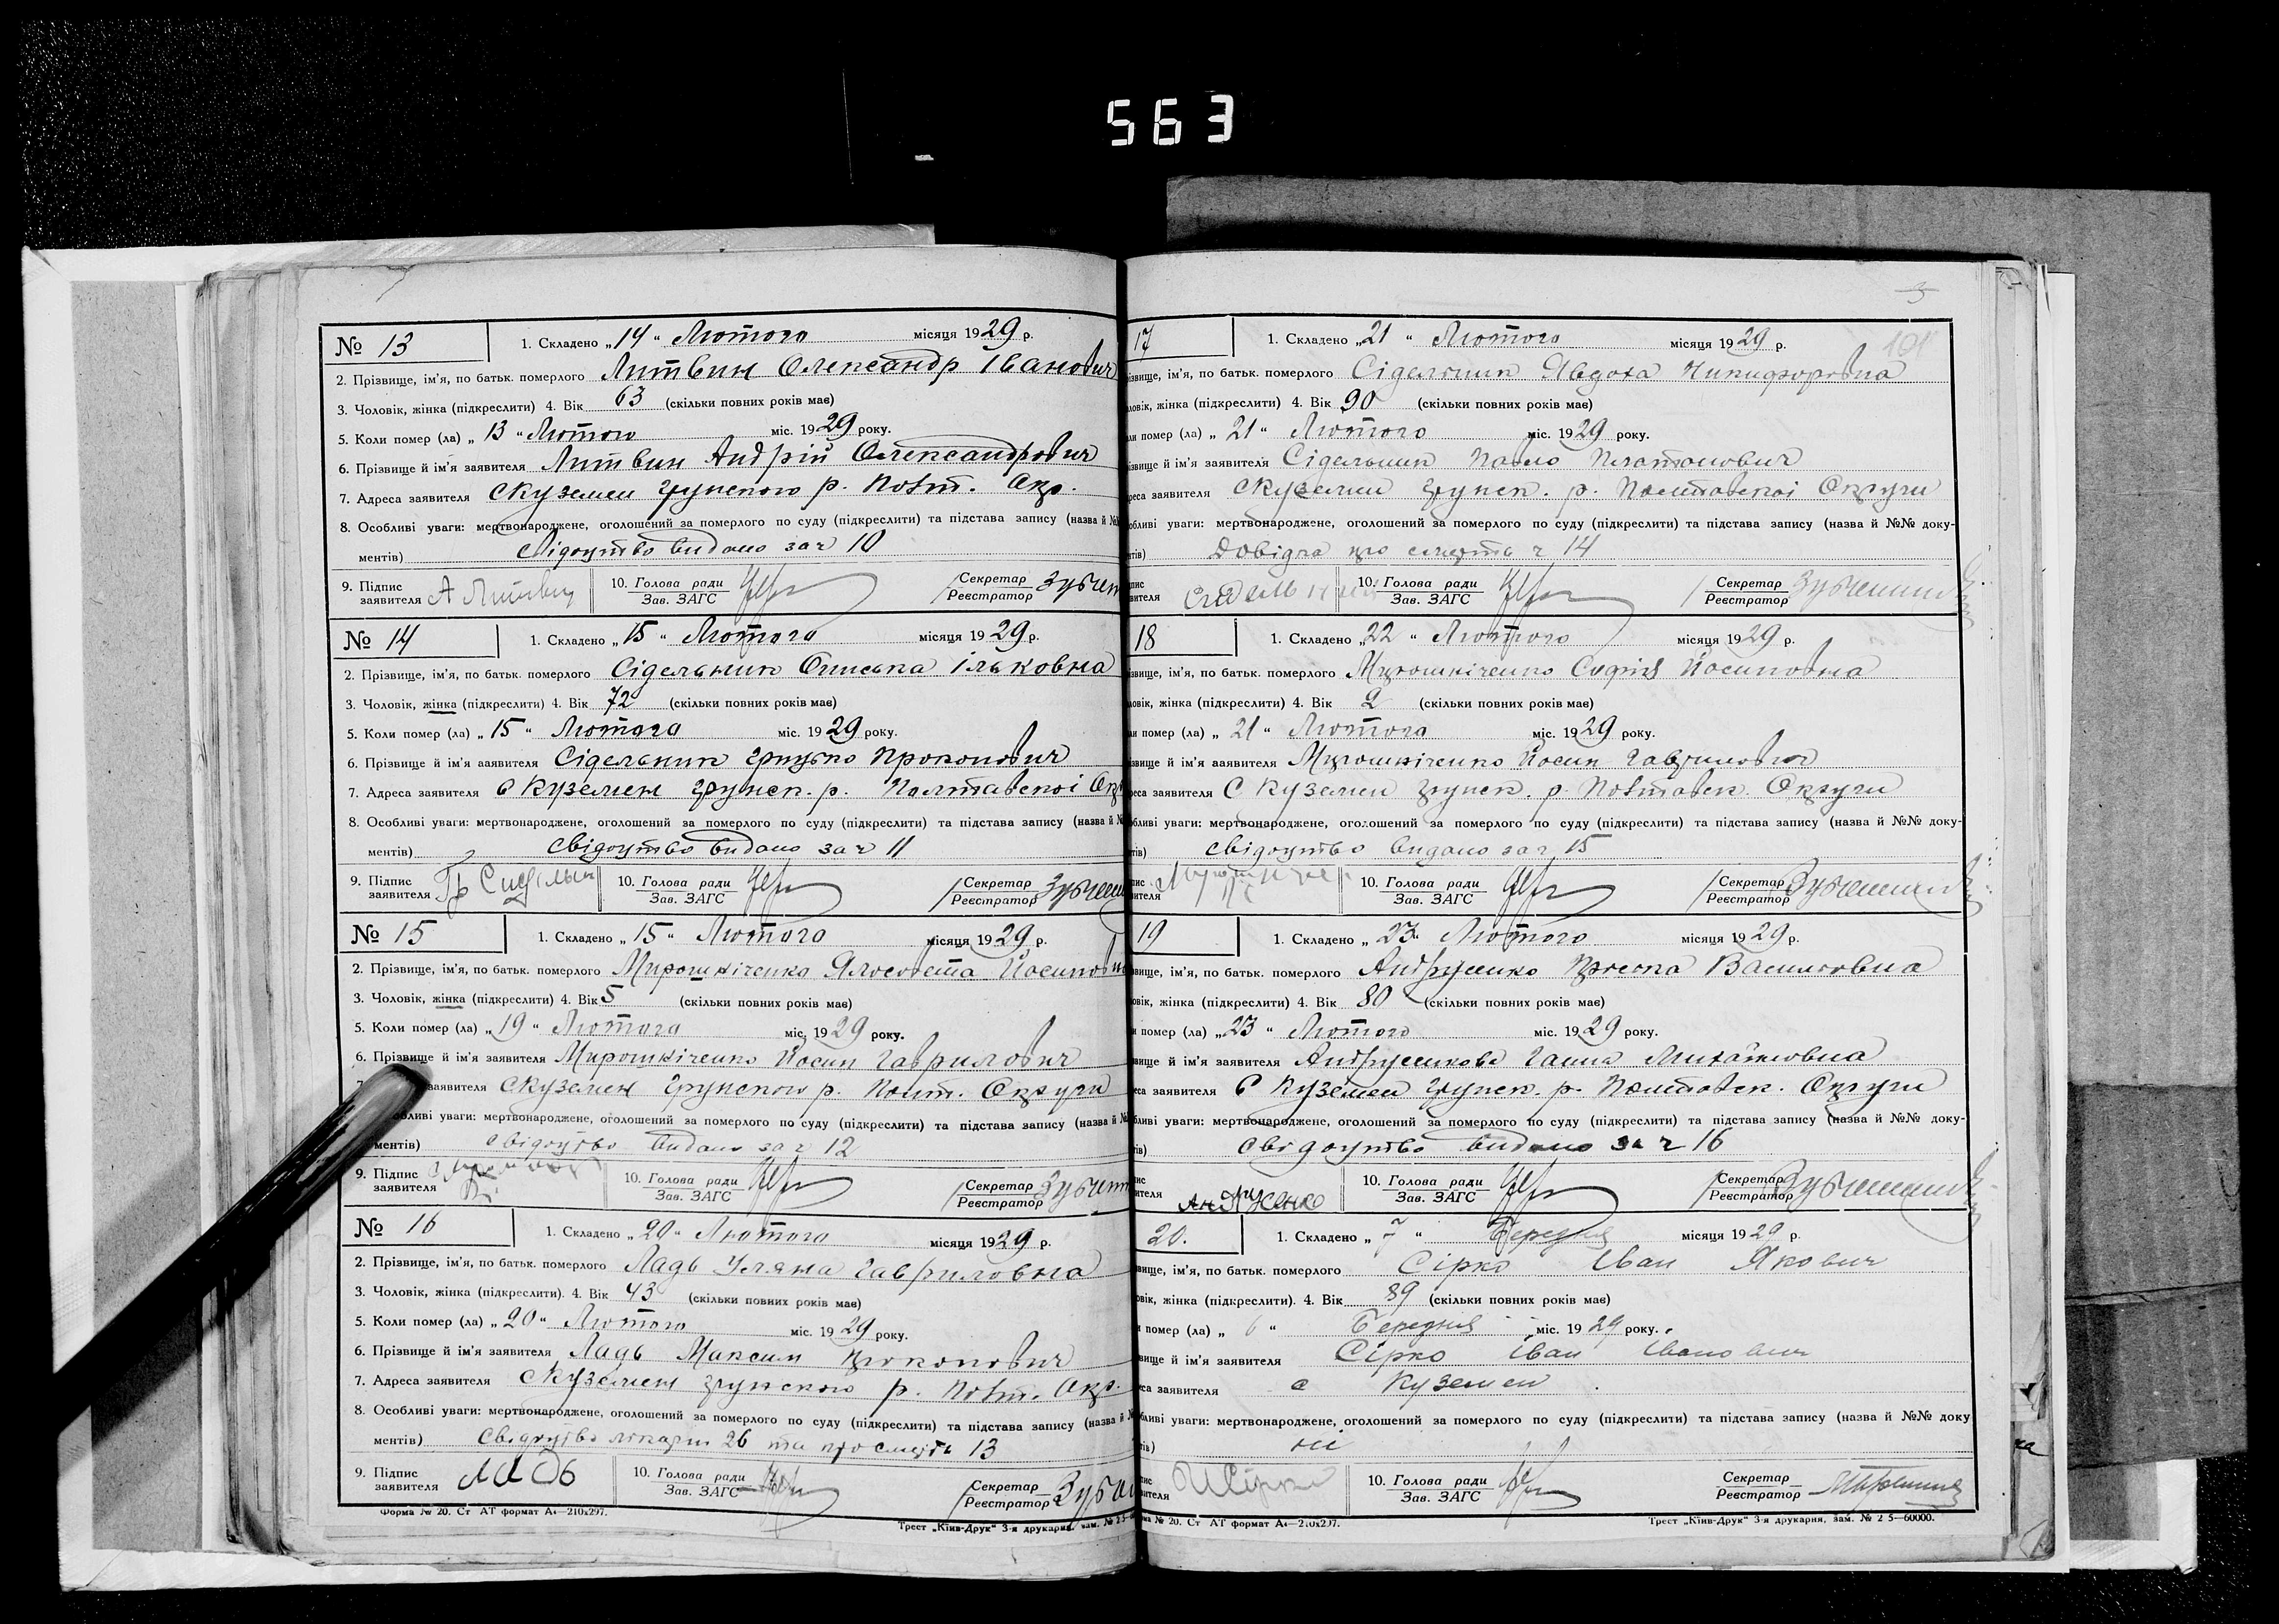 563
№ 13
1. Складено „14“ Лютого місяця 1929 р.
2. Прізвище, ім'я, по батьк. померлого Литвин Олександр Іванович
3. Чоловік, жінка (підкреслити) 4. Вік 63 (скільки повних років має)
5. Коли помер (ла) „13“ Лютого міс. 1929 року.
6. Прізвище й ім'я заявителя Литвин Андрій Олександрович
7. Адреса заявителя с Куземен Грунского р. Полт. Окр.
8. Особливі уваги: мертвонароджене, оголошений за померлого по суду (підкреслити) та підстава запису (назва й
ментів) свідоцтво видано за ч 10
9. Підпис заявителя А Литвин 10. Голова ради Зав. ЗАГС Секретар Реєстратор
№ 14
1. Складено „15“ Лютого місяця 1929 р.
2. Прізвище, ім'я, по батьк. померлого Сідельник Ониська Ільковна
3. Чоловік, жінка (підкреслити) 4. Вік 72 (скільки повних років має)
5. Коли помер (ла) „15“ Лютого міс. 1929 року.
6. Прізвище й ім'я заявителя Сідельник Грицько Прокопович
7. Адреса заявителя С Куземен Грунск. р. Полтавскоі Окр
8. Особливі уваги: мертвонароджене, оголошений за померлого по суду (підкреслити) та підстава запису (назва й
ментів) свідоцтво видано за ч 11
9. Підпис заявителя Гр 10. Голова ради Зав. ЗАГС Секретар Реєстратор
№ 15
1. Складено „15“ Лютого місяця 1929 р.
2. Прізвище, ім'я, по батьк. померлого Мирошніченко Йосиповна
3. Чоловік, жінка (підкреслити) 4. Вік 5 (скільки повних років має)
5. Коли помер (ла) „19“ Лютого міс. 1929 року.
6. Прізвище й ім'я заявителя Мирошніченко Йосип Гаврилович
заявителя с Куземен Грунского р. Полт. Округи
ливі уваги: мертвонароджене, оголошений за померлого по суду (підкреслити) та підстава запису (назва й
ментів) свідоцтво видано за ч 12
9. Підпис заявителя 10. Голова ради Зав. ЗАГС Секретар Реєстратор
№ 16
1. Складено „20“ Лютого місяця 1929 р.
2. Прізвище, ім'я, по батьк. померлого Ладь Уляна Гавриловна
3. Чоловік, жінка (підкреслити). 4. Вік 43 (скільки повних років має)
5. Коли помер (ла) „20“ Лютого міс. 1929 року.
6. Прізвище й ім'я заявителя Ладь Максим Прокопович
7. Адреса заявителя с Куземен Грунского р. Полт. Окр.
8. Особливі уваги: мертвонароджене, оголошений за померлого по суду (підкреслити) та підстава запису (назва й
ментів) Свідоцтво лікарні 26 та про смерть 13
9. Підпис заявителя Ладь 10. Голова ради Зав. ЗАГС Секретар Реєстратор
Форма № 20. Ст АТ формат А4—210x297.
Трест „Київ-Друк“ 3-я друкарня, зам. №
3
101
17
1. Складено „21“ Лютого місяця 1929 р.
ізвище, ім'я, по батьк. померлого Сідельник Явдоха Никифоровна
ловік, жінка (підкреслити) 4. Вік 90 (скільки повних років має)
ли помер (ла) „21“ Лютого міс. 1929 року.
ізвище й ім'я заявителя Сідельник Павло Платонович
реса заявителя с Куземен Грунск. р. Полтавскоі Округи
обливі уваги: мертвонароджене, оголошений за померлого по суду (підкреслити) та підстава запису (назва й №№ доку-
нтів) Довідка про смерть ч 14
пис вителя Сидельник 10. Голова ради Зав. ЗАГС Секретар Реєстратор
18
1. Складено „22“ Лютого місяця 1929 р.
ізвище, ім'я, по батьк. померлого Мирошніченко Софія Йосиповна
ловік, жінка (підкреслити) 4. Вік 2 (скільки повних років має)
ли помер (ла) „21“ Лютого міс. 1929 року.
ізвище й ім'я заявителя Мирошніченко Йосип Гаврилович
реса заявителя С Куземен Грунск. р. Полтавск. Округи
обливі уваги: мертвонароджене, оголошений за померлого по суду (підкреслити) та підстава запису (назва й №№ доку-
тів) свідоцтво видано за ч 15
пис вителя 10. Голова ради Зав. ЗАГС Секретар Реєстратор
19
1. Складено „23“ Лютого місяця 1929 р.
звище, ім'я, по батьк. померлого Андрущенко Пріська Василовна
овік, жінка (підкреслити) 4. Вік 80 (скільки повних років має)
и помер (ла) „23“ Лютого міс. 1929 року.
вище й ім'я заявителя Ганна Михайловна
еса заявителя С Куземен Грунск. р. Полтавск. Округи
бливі уваги: мертвонароджене, оголошений за померлого по суду (підкреслити) та підстава запису (назва й №№ доку-
тів) свідоцтво видано за ч 16
ис вителя 10. Голова ради Зав. ЗАГС Секретар Реєстратор
20.
1. Складено „7“ Березня місяця 1929 р.
вище, ім'я, по батьк. померлого Сірко Іван Якович
овік, жінка (підкреслити). 4. Вік 89 (скільки повних років має)
и помер (ла) „6“ Березня міс. 1929 року.
вище й ім'я заявителя Сірко Іван Іванович
еса заявителя с Куземен
бливі уваги: мертвонароджене, оголошений за померлого по суду (підкреслити) та підстава запису (назва й №№ доку
тів) ні
пис вителя И Сірко 10. Голова ради Зав. ЗАГС Секретар Реєстратор
ма № 20. Ст АТ формат А4—210x297.
Трест „Київ-Друк“ 3-я друкарня, зам. № 2 5—60000.